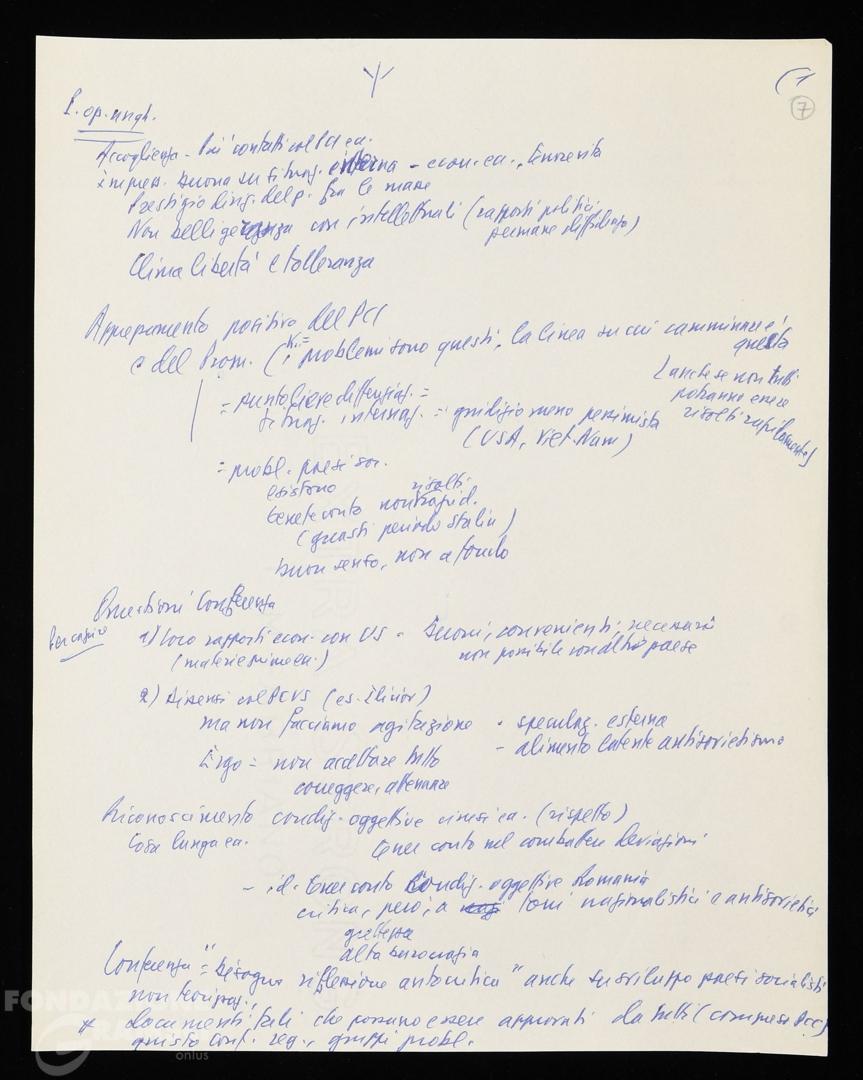 (1
7
I. op. ungh.
Accoglienza - Più contatti col PCI ec.
impress. buona su situaz. interna - econ. ec., tenore vita
Prestigio dirig. del p. fra le masse
Non belligeranza con intellettuali (rapporti politici
permane diffidenza)
Clima libertà e tolleranza
Apprezzamento positivo del PCI
e del Prom. ( problemi sono questi, la linea su cui camminare è
questa
(anche se non tutti
potranno essere
risolti rapidamente)
= punto lieve differenziaz. =
situaz. internaz. = giudizio meno pessimista
(USA, Viet-Nam)
= probl. paesi soc.
esistono risolti
tenete conto non rapid.
(guasti periodo Stalin)
buon senso, non a fondo
Questioni Conferenza
1) Loro rapporti econ. con US = buoni, convenienti, necessari
(materie prime ec.) non possibile con altro paese
2) Dissensi col PCUS (es.
ma non facciamo agitazione - speculaz. esterna
- alimento latente antisovietismo
Ergo = non accettare tutto
correggere, attenuare
Riconoscimento condiz. oggettive cinesi ec. (rispetto)
Cosa lunga ec. tener conto nel combattere deviazioni
- id. tener conto condiz. oggettive Romania
critica, però, a toni nazionalistici e antisovietici
grettezza
alta burocrazia
Conferenza = "bisogno riflessione autocritica" anche su sviluppo paesi socialisti
non teorizzaz.,
* documenti tali che possano essere approvati da tutti (compreso PCC)
questo conf. reg., gruppi probl.
FONDAZIONE
GRAMSCI
onlus